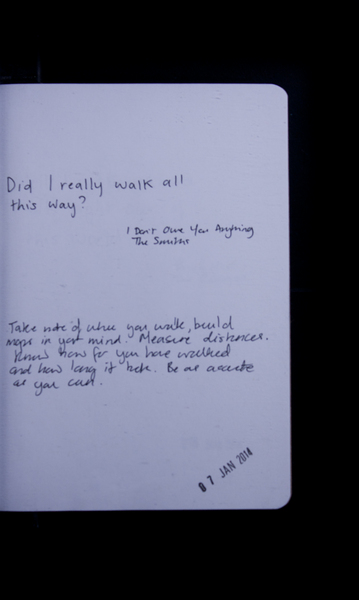 Did I really walk all
this way?
I Don't Owe You Anything
The Smiths
Take note of where you walk, build
maps in your mind. Measure distances.
Know how far you have walked
and how long it took. Be as accurate
as you can.
07 JAN 2014